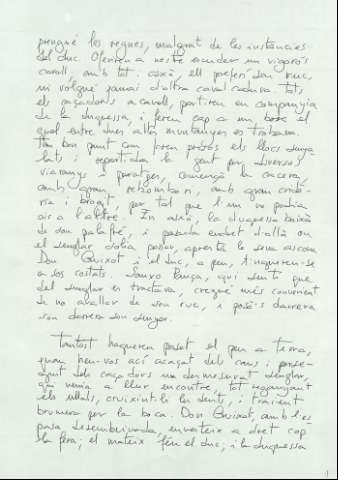 prengué les regnes, malgrat de les instàncies
del duc. Oferiren a nostre escuder un vigorós
cavall, amb tot això, ell preferí son ruc,
ni volgué jamai d'altra cavalcadura. Tots
els caçadors a cavall, partiren en companyia
de la duquessa, i feren cap a un bosc el
qual entre dues altes muntanyes es trobava.
Tan bon punt com foren presos els llocs
i repartida la gent per diversos
viaranys i paratges, començà la cacera,
amb gran rebombori, amb gran
i brogit, per tal que l'un no podia
oir a l'altre. En això, la duquessa baixà
de son palafré, i posada endret d'allà on
el senglar solia passar, apretà la seva ascona.
Don Quixot i el duc, a peu, tingueren-se
a sos costats. Sanxo Pança, qui sentí que
del senglar es tractava, cregué més convenient
de no avallar de son ruc, i posà's darrera
son darrera son senyor.
Tantost hagueren posat el peu a terra,
quan heu-vos ací acaçat dels cans i
dels caçadors un desmesurat senglar,
que venia a llur encontre tot reganyant
els ullals, cruixint-li les dents, i traient
bromera per la boca. Don Quixot, amb l'es-
pasa desembeinada, envesteix a dret cap
la fera; el mateix féu el duc; i la duquessa